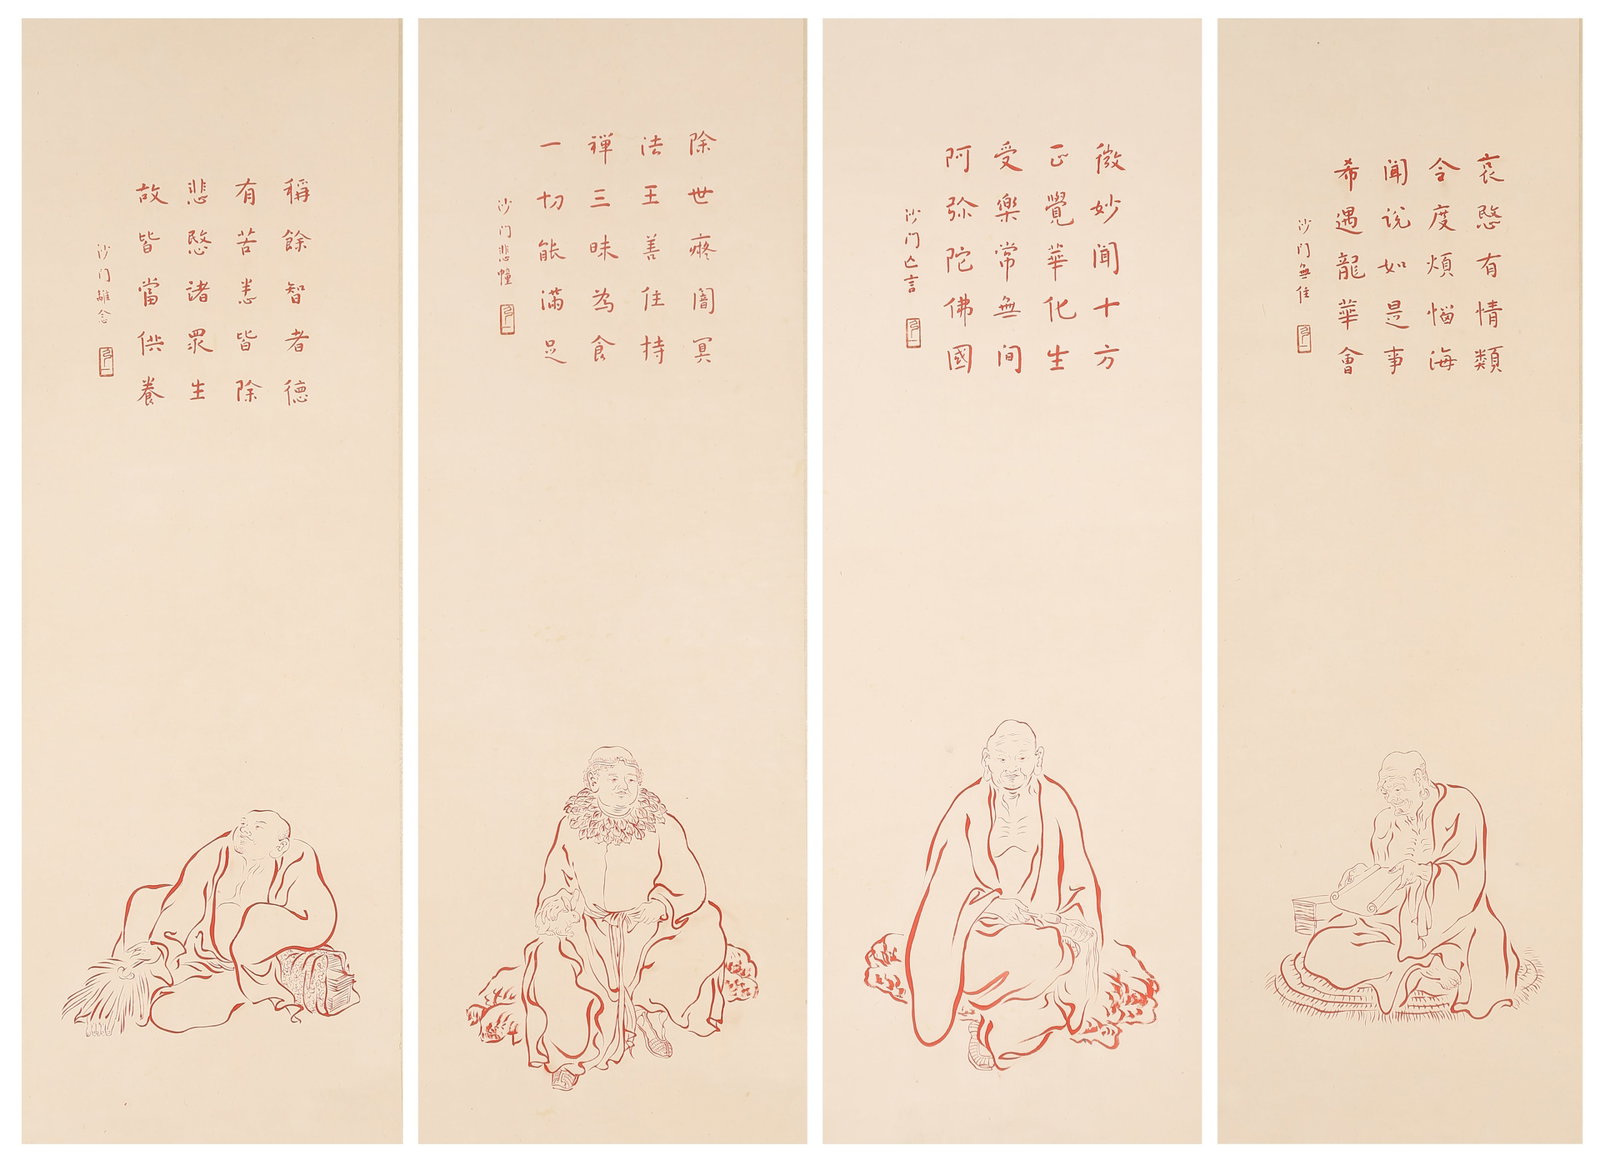 哀愍有情類
令度煩惱海
聞说如是事
希遇龍華會
沙门無住
微妙闻十方
正覺華化生
受樂常無间
阿弥陀佛國
沙门亡言
除世癡闇冥
法王善住持
禅三昧為食
一切能滿足
沙门悲幢
稱餘智者德
有苦悉皆除
悲愍諸眾生
故皆當供養
沙门離念